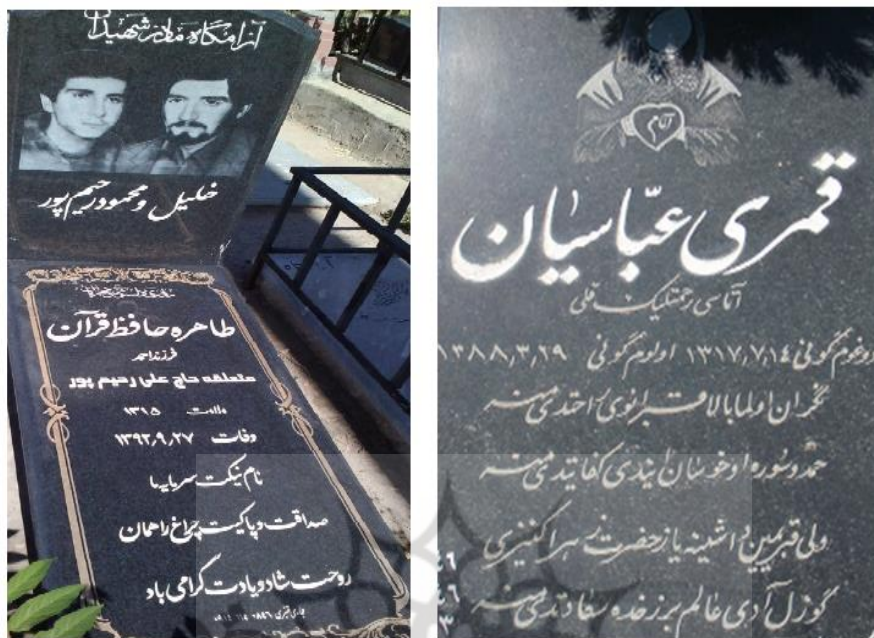 آرامگاه مادر شهیدان
خلیل و محمود رحیم پور
طاهره حافظ قرآن
فرزند احمد
متعلقه حاج علی رحیم پور
ولادت ۱۳۱۵
وفات ۱۳۹۲٫۹٫۲۷
نام نیکت سرمایه ما
صداقت و پاکیت چراغ راهمان
روحت شاد و یادت گرامی باد
آنام
قمری عبّاسیان
آتاسی رحمتلیک قلی
دوغوم گونی ۱۳۱۷٫۷٫۱٤ اولوم گونی ۱۳۸۸٫۳٫۲۹
نگران اولما بالا قبرانوی احتدی منه
حمد و سوره اوخوسان ایندی کفایتدی منه
ولی قبریمین داشینه یاز حضرت زهرا کنیزی
گوزل آدی عالم برزخده سعادتدی منه